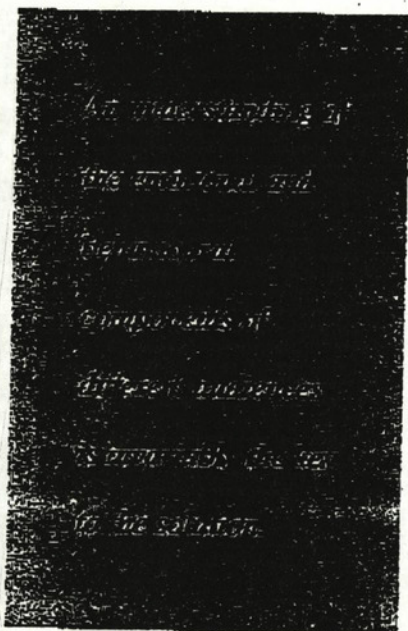 An understanding of
the emotional and
behavioral
components of
different audiences
is the key
to the solution.